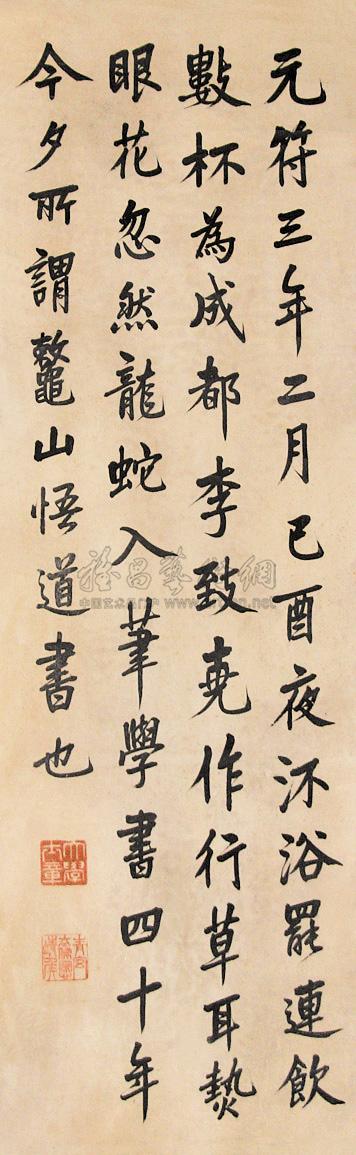 元符三年二月己酉夜沐浴罷連飲
數杯為成都李致尭作行草耳熱
眼花忽然龍蛇入筆學書四十年
今夕所謂鼇山悟道書也